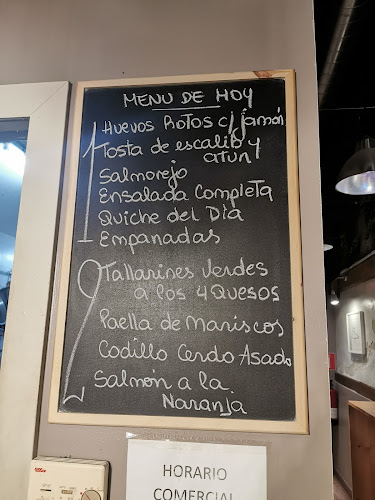 MENU DE HOY
1 Huevos Rotos c/ jamón
Tosta de escalib y
atun
Salmorejo
Ensalada Completa
Quiche del Dia
Empanadas
2 Tallarines Verdes
a los 4 Quesos
Paella de Mariscos
Codillo Cerdo Asado
Salmón a la
Naranja
HORARIO
COMERCIAL